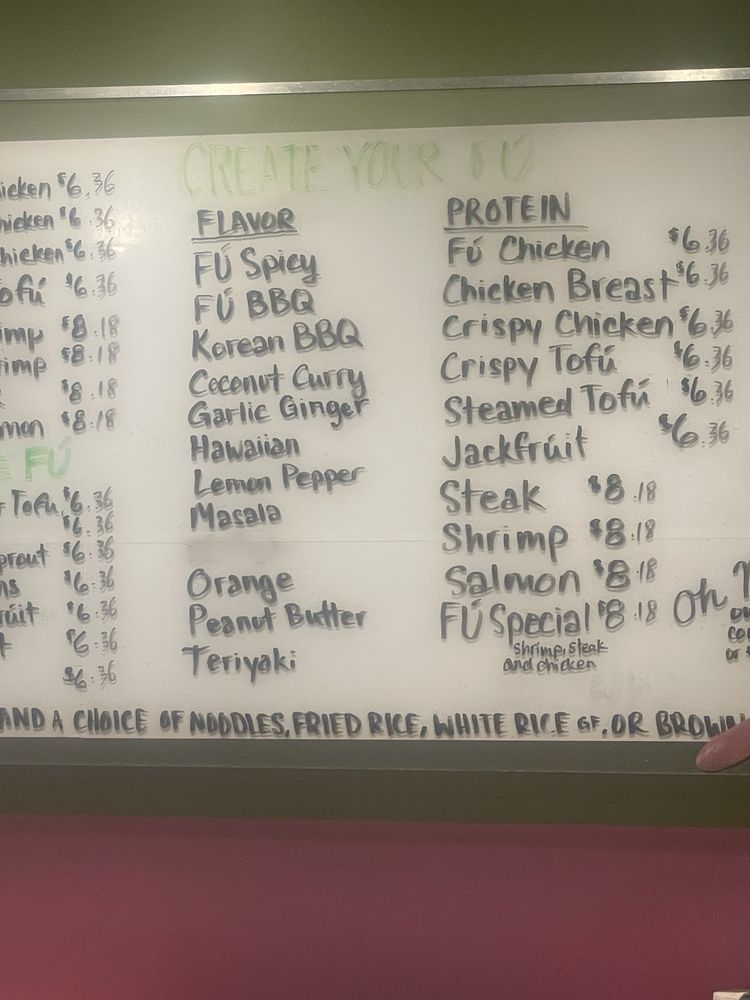 CREATE YOUR FÚ
icken $6.36
hicken $6.36
hicken $6.36
ofú $6.36
imp $8.18
rimp $8.18
$8.18
mon $8.18
FÚ
Tofu $6.36
$6.36
prout $6.36
ns $6.36
rúit $6.36
t $6.36
$6.36
FLAVOR
FÚ Spicy
FÚ BBQ
Korean BBQ
Coconut Curry
Garlic Ginger
Hawaiian
Lemon Pepper
Masala
Orange
Peanut Butter
Teriyaki
PROTEIN
FÚ Chicken $6.36
Chicken Breast $6.36
Crispy Chicken $6.36
Crispy Tofú $6.36
Steamed Tofú $6.36
Jackfrúit $6.36
Steak $8.18
Shrimp $8.18
Salmon $8.18
FÚ Special $8.18
shrimp, steak
and chicken
Oh
or
AND A CHOICE OF NOODLES, FRIED RICE, WHITE RICE GF, OR BROWN